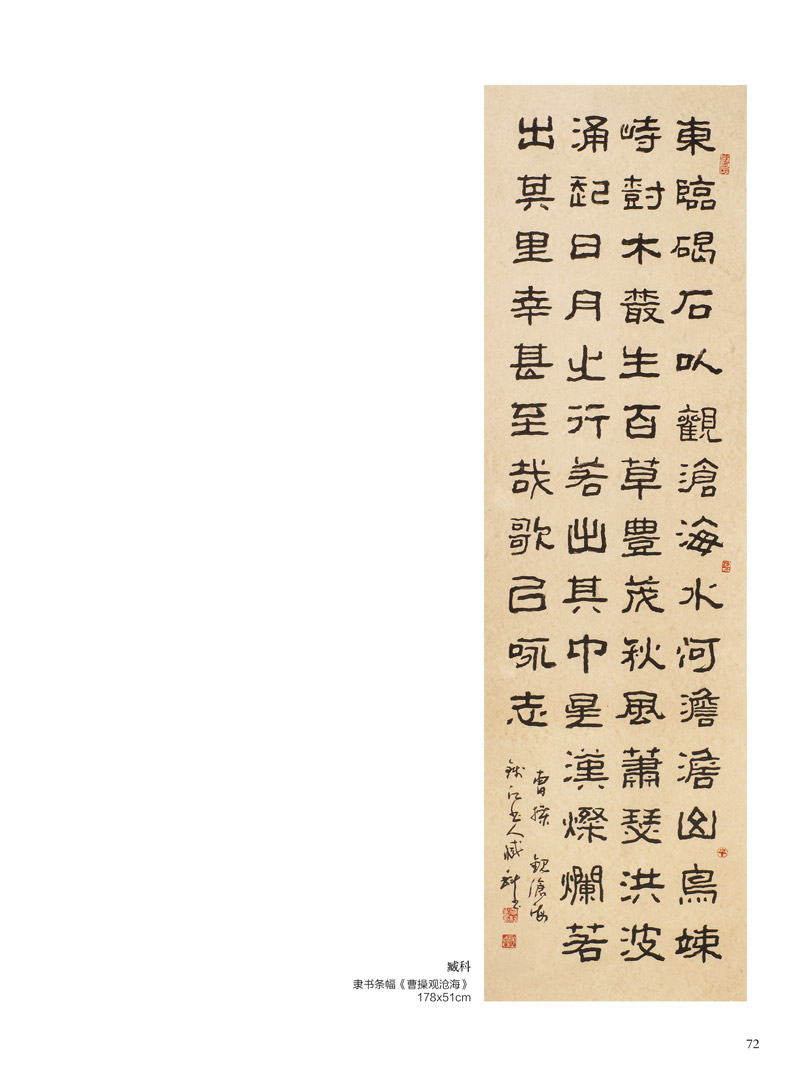 東臨碣石以觀滄海水河澹澹山島竦
峙樹木叢生百草豐茂秋風蕭瑟洪波
涌起日月之行若出其中星漢燦爛若
出其里幸甚至哉歌以咏志
曹操 觀滄海
江书人臧科书
臧科
隶书条幅《曹操观沧海》
178x51cm
72